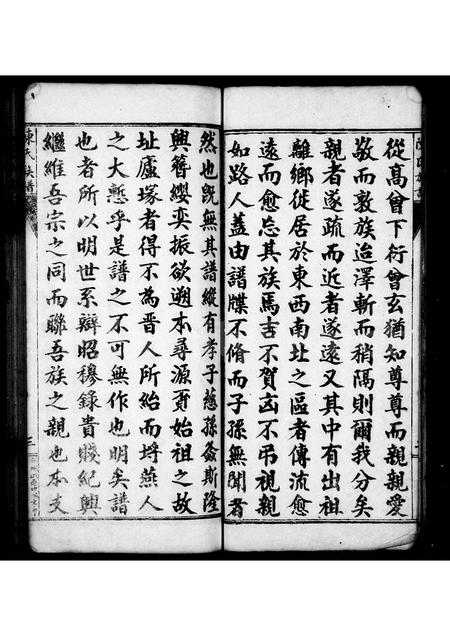 從高曾下衍曾玄猶知尊尊而親親愛
敬而敦族迨澤斬而稍隔則爾我分矣
親者遂疏而近者遂遠又其中有出祖
離鄉徙居於東西南北之區者傳流愈
遠而愈忘其族焉吉不賀凶不弔視親
如路人蓋由譜牒不脩而子孫無聞者
然也既無其譜縱有孝子慈孫螽斯隆
興簪纓奕振欲遡本尋源覓始祖之故
址廬塚者得不為晋人所紿而埒燕人
之大慙乎是譜之不可無作也明矣譜
也者所以明世系辯昭穆錄貴賤紀興
繼維吾宗之同而聯吾族之親也本支
陳氏族譜
三